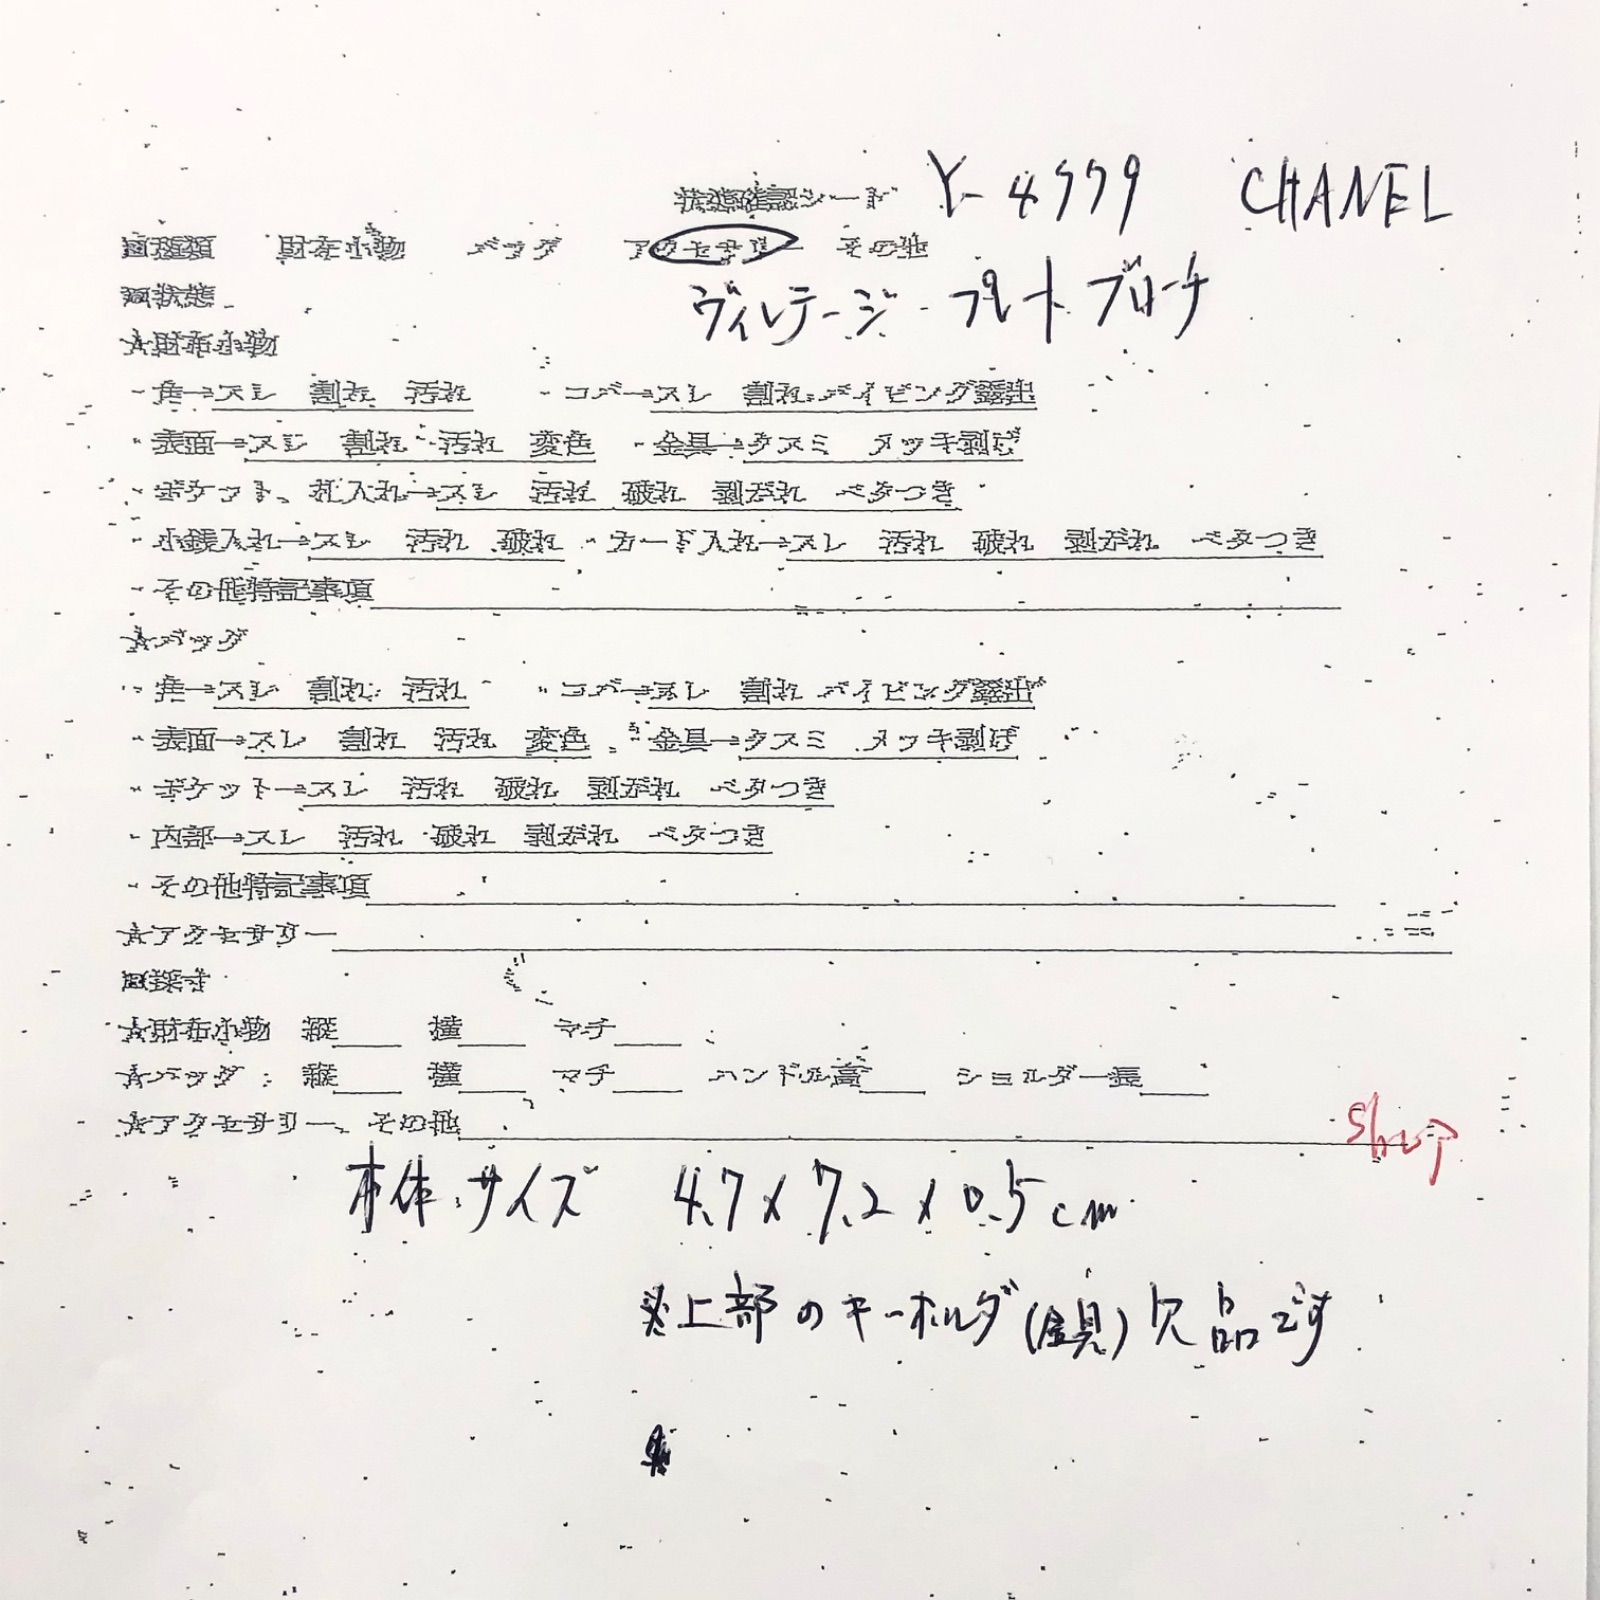 状態確認シート Y-4779 CHANEL
□種類 財布小物 バッグ アクセサリー その他
□状態 ヴィンテージ プレートブローチ
☆財布小物
・角→スレ 割れ 汚れ ・コバ→スレ 割れ パイピング露出
・表面→スレ 割れ 汚れ 変色 ・金具→クスミ メッキ剥げ
・ポケット、札入れ→スレ 汚れ 破れ 剥がれ ベタつき
・小銭入れ→スレ 汚れ 破れ ・カード入れ→スレ 汚れ 破れ 剥がれ ベタつき
・その他特記事項
☆バッグ
・角→スレ 割れ 汚れ ・コバ→スレ 割れ パイピング露出
・表面→スレ 割れ 汚れ 変色 ・金具→クスミ メッキ剥げ
・ポケット→スレ 汚れ 破れ 剥がれ ベタつき
・内部→スレ 汚れ 破れ 剥がれ ベタつき
・その他特記事項
☆アクセサリー
□採寸
☆財布小物 縦 横 マチ
☆バッグ 縦 横 マチ ハンドル高 ショルダー長
☆アクセサリー、その他
本体サイズ 4.7×7.2×0.5cm
※上部のキーホルダ(金具)欠品です